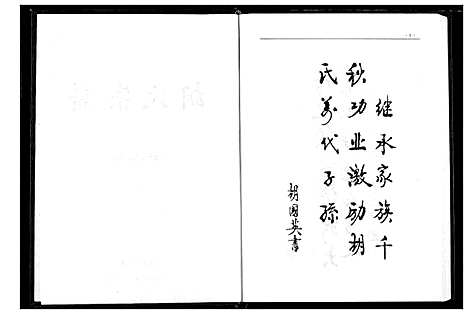 继承家族千
秋功业激励胡
氏万代子孙
胡国英书